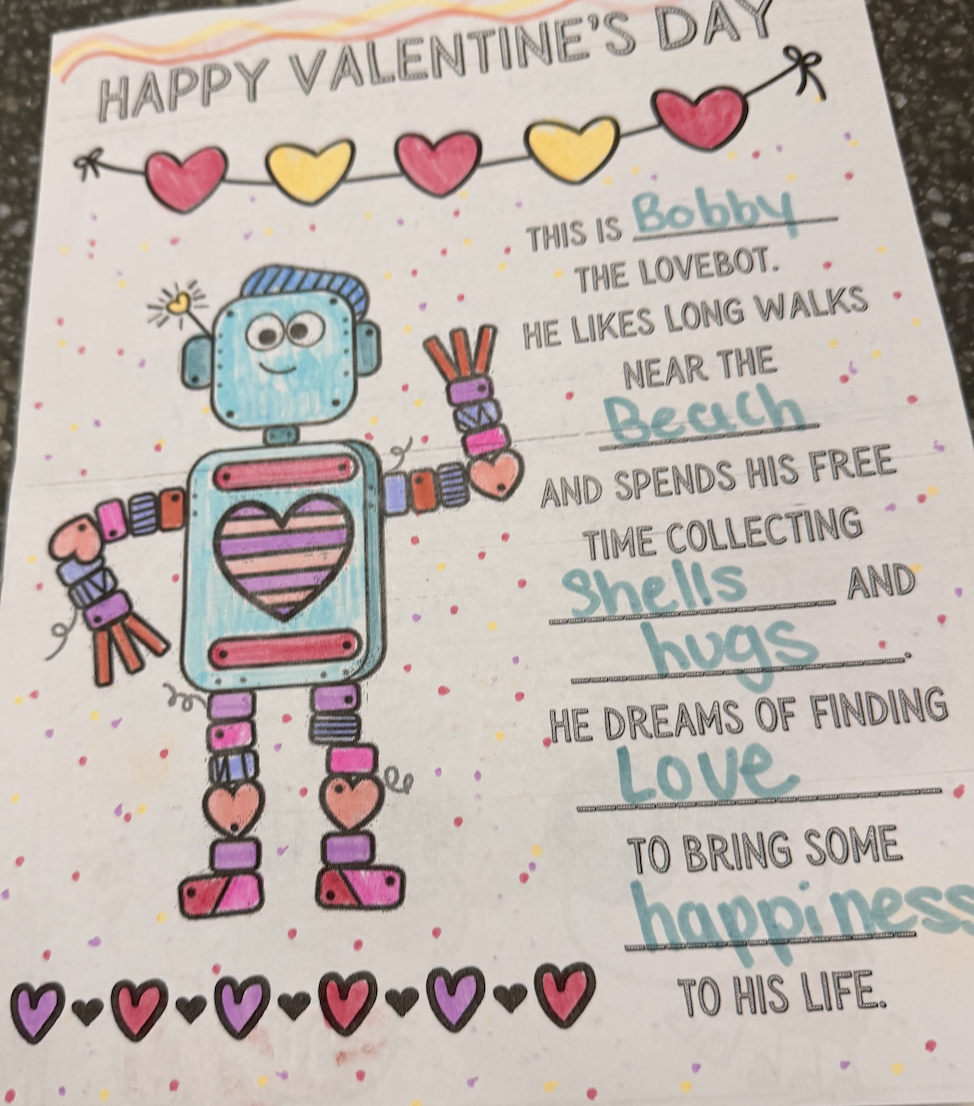 HAPPY VALENTINE'S DAY
THIS IS Bobby
THE LOVEBOT.
HE LIKES LONG WALKS
NEAR THE
Beach
AND SPENDS HIS FREE
TIME COLLECTING
Shells AND
hugs.
HE DREAMS OF FINDING
Love
TO BRING SOME
happiness
TO HIS LIFE.